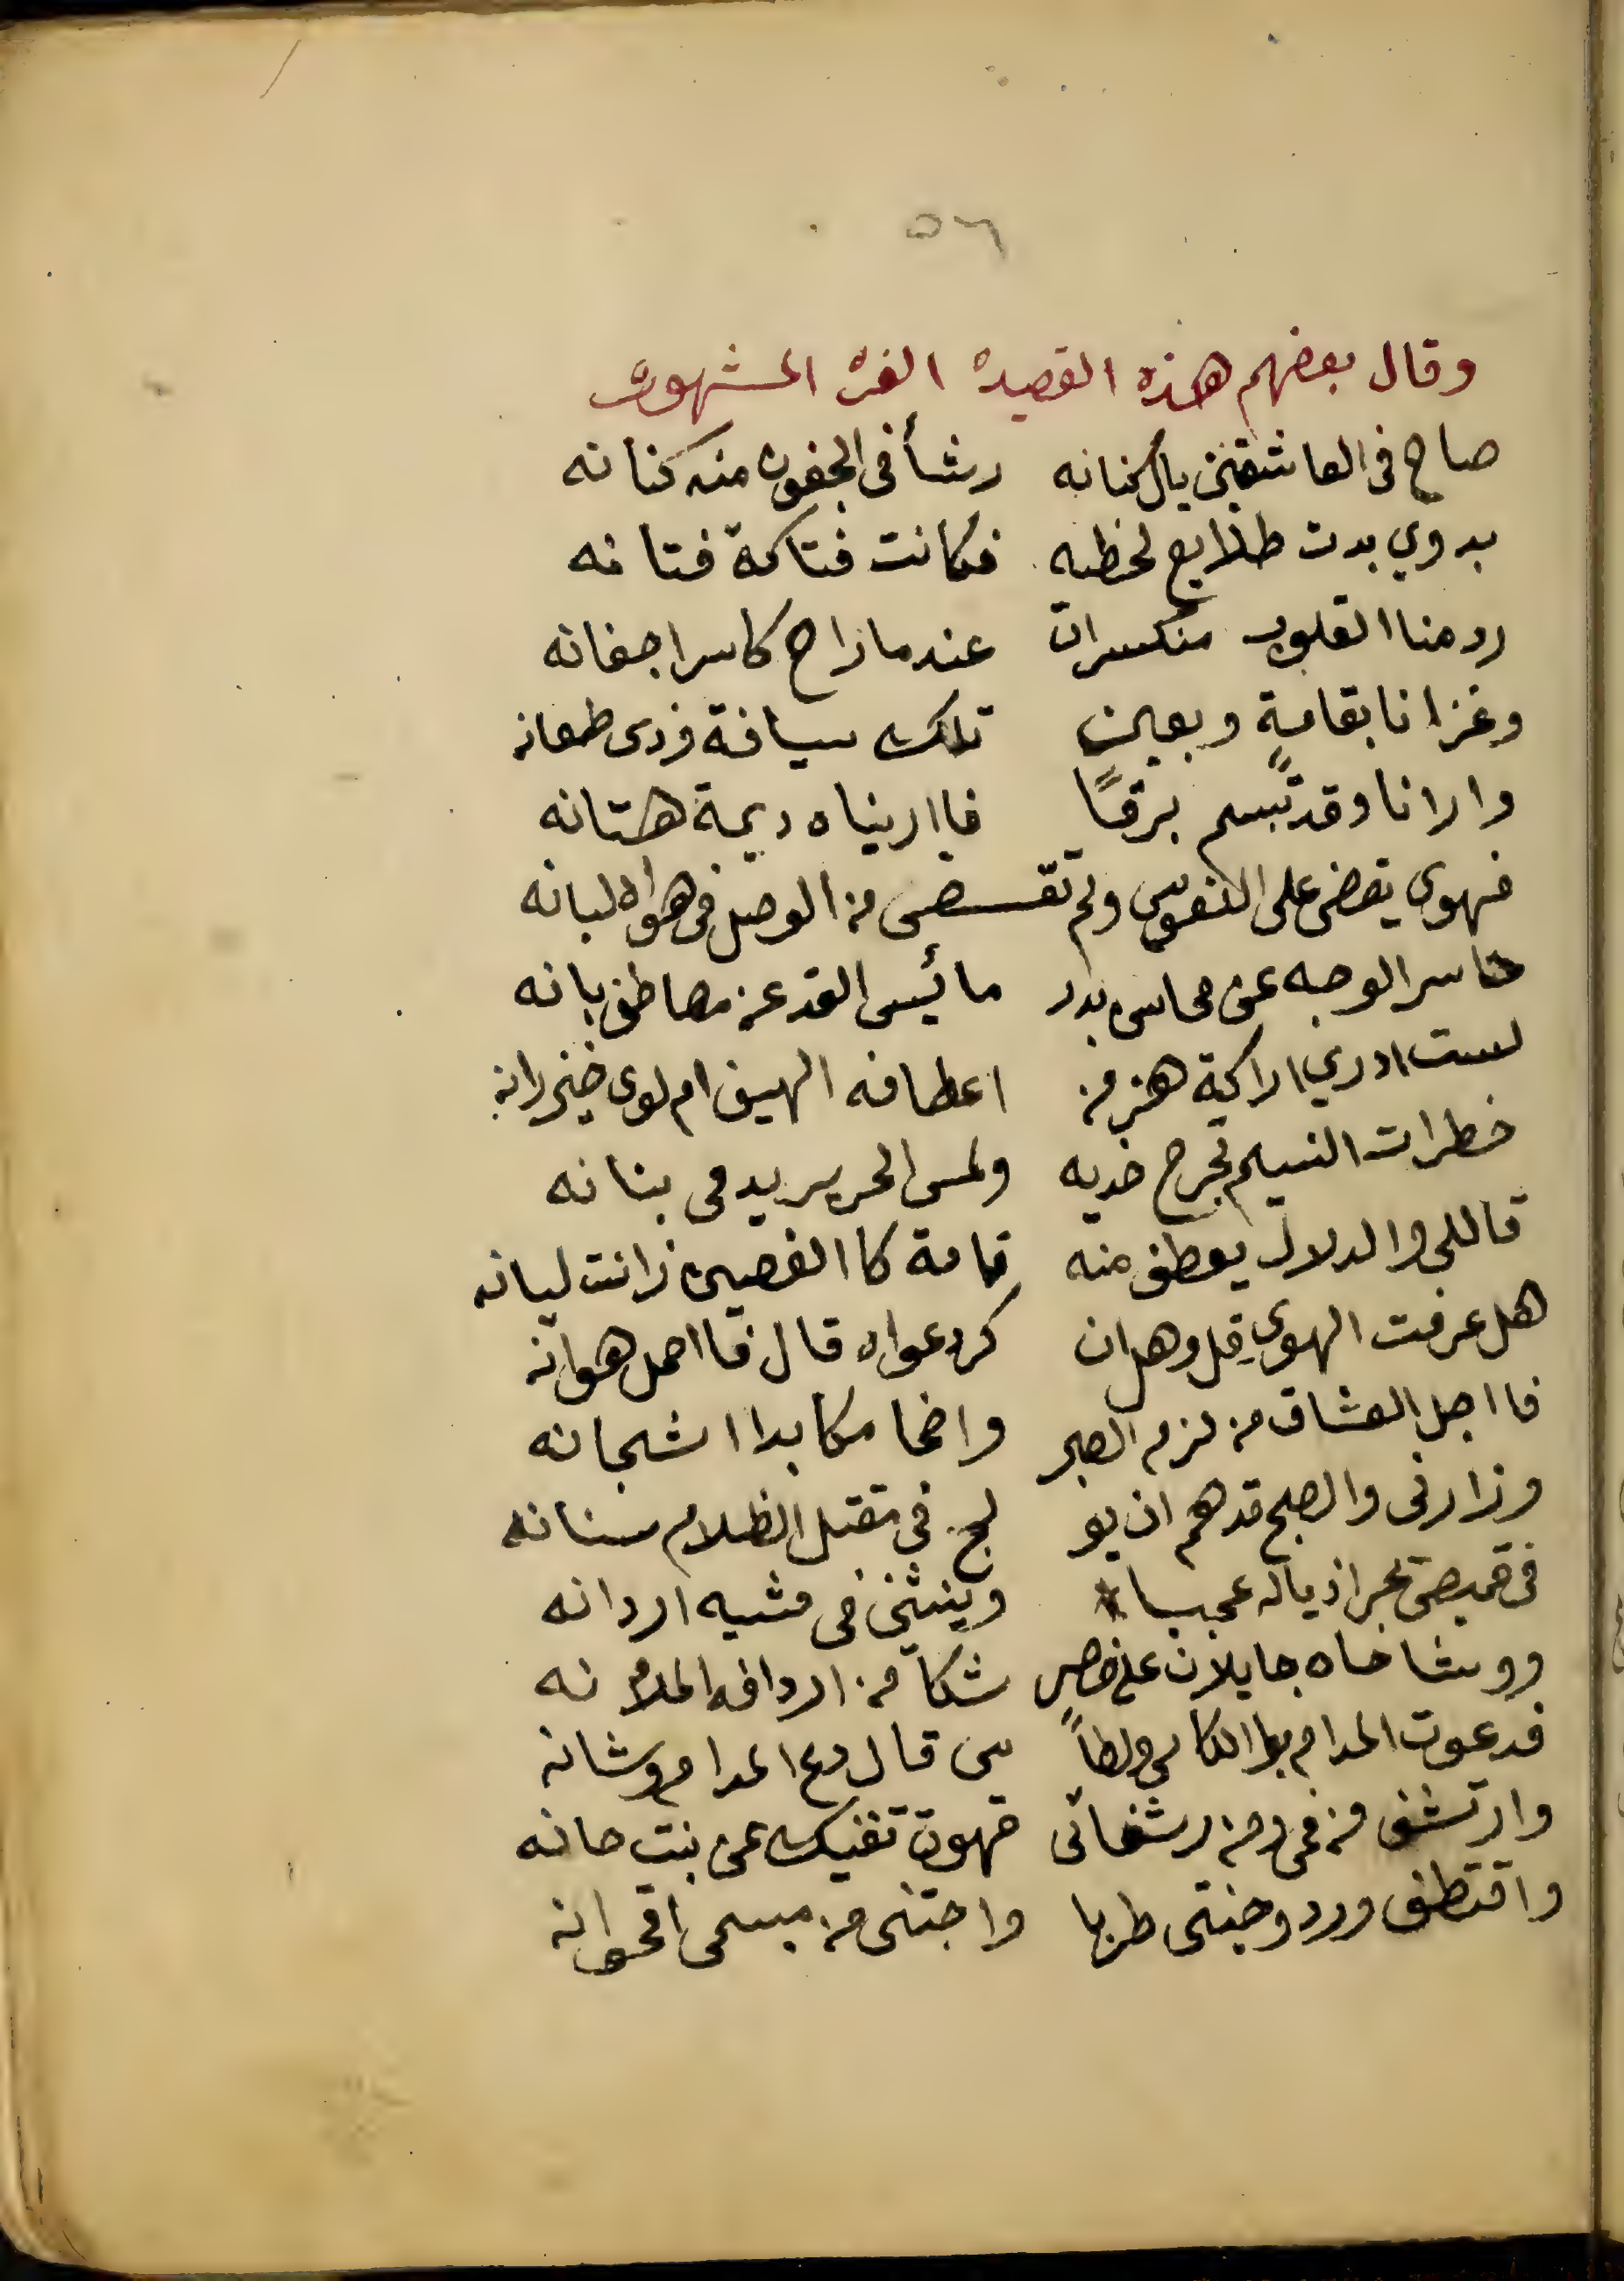 ٥٦
وقال بعضهم هذه القصيدة الغرة المشهورة
صاح فى العاشقين يال كنانه رشأ فى الجفون منه كنانه
بدوي بدت طلايع لحظيه فكانت فتاكة فتانه
رد منا القلوب منكسرات عند ما راح كاسرا جفانه
وغزا نا بقامةٍ وبعين تلك سيافة وذى طعانه
وارانا وقد تبسم برقاً فااريناه ديمة هتانه
فهوى يقضى على النفوس ولم تقضى من الوصل فى هواه لبانه
حاسر الوجه عن محاسن بدر مائيس القد عن معاطف بانه
لست ادري اراكية هز من اعطافه الهيف ام لوى خيزرانه
خطرات النسيم تجرح خديه ولمس الحرير يدمى بنانه
قال لى والدلال يعطف منه قامة كاالغصين زانت ليانه
هل عرفت الهوى قل وهل ان كر دعواه قال فااحمل هوانه
فااجل العشاق من لزم الصبر واضحا مكابدا اشجانه
وزارنى والصبح قد هم ان يو لج فى مقتل الظلام سنانه
فى قميص يجر اذياله عجبا وينثنى فى مشيه اردانه
ووشاحاه جايلان على خصر شكا من اردافه الملانه
فدعوت المدام بوا الكاس ولطاً سى قال دع المدام وشانه
وارتشف من فمى ومن رشفاتى قهوة تغنيك عن بنت حانه
واقتطف ورد وجنتى طربا واجتنى من مبسمى اقحوانه